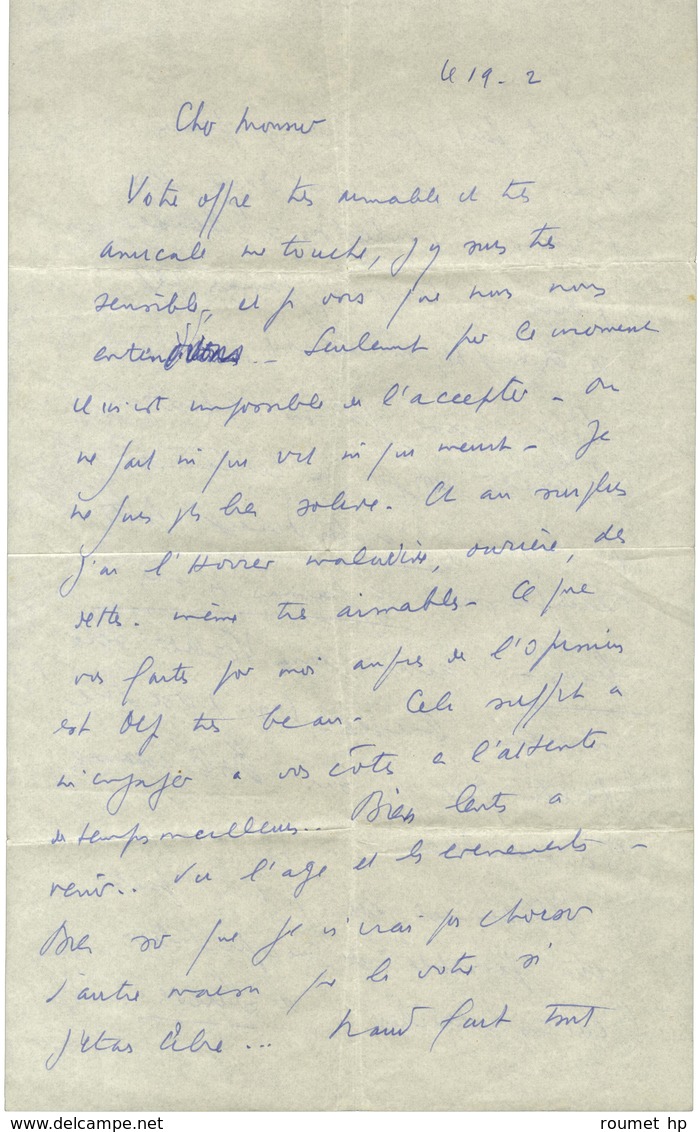 le 19-2
Cher Monsieur
Votre offre très aimable et très
amicale me touche, j'y suis très
sensible, et je vois que nous nous
entendrons - Seulement pour le moment
il m'est impossible de l'accepter - On
ne sait ni qui vit ni qui meurt - Je
ne suis pas très solide. Et au surplus
j'ai l'Horreur maladive, ouvrière, des
dettes. même très aimables - Ce que
vous faites pour moi auprès de l'Opinion
est déjà très beau - Cela suffit à
m'engager à vos côtés à l'attente
de temps meilleurs.. Bien lents à
venir.. Vu l'age et les evenements -
Bien sûr que je n'irai pas choisir
d'autre maison que la votre si
j'étais libre...
www.delcampe.net
roumet hp